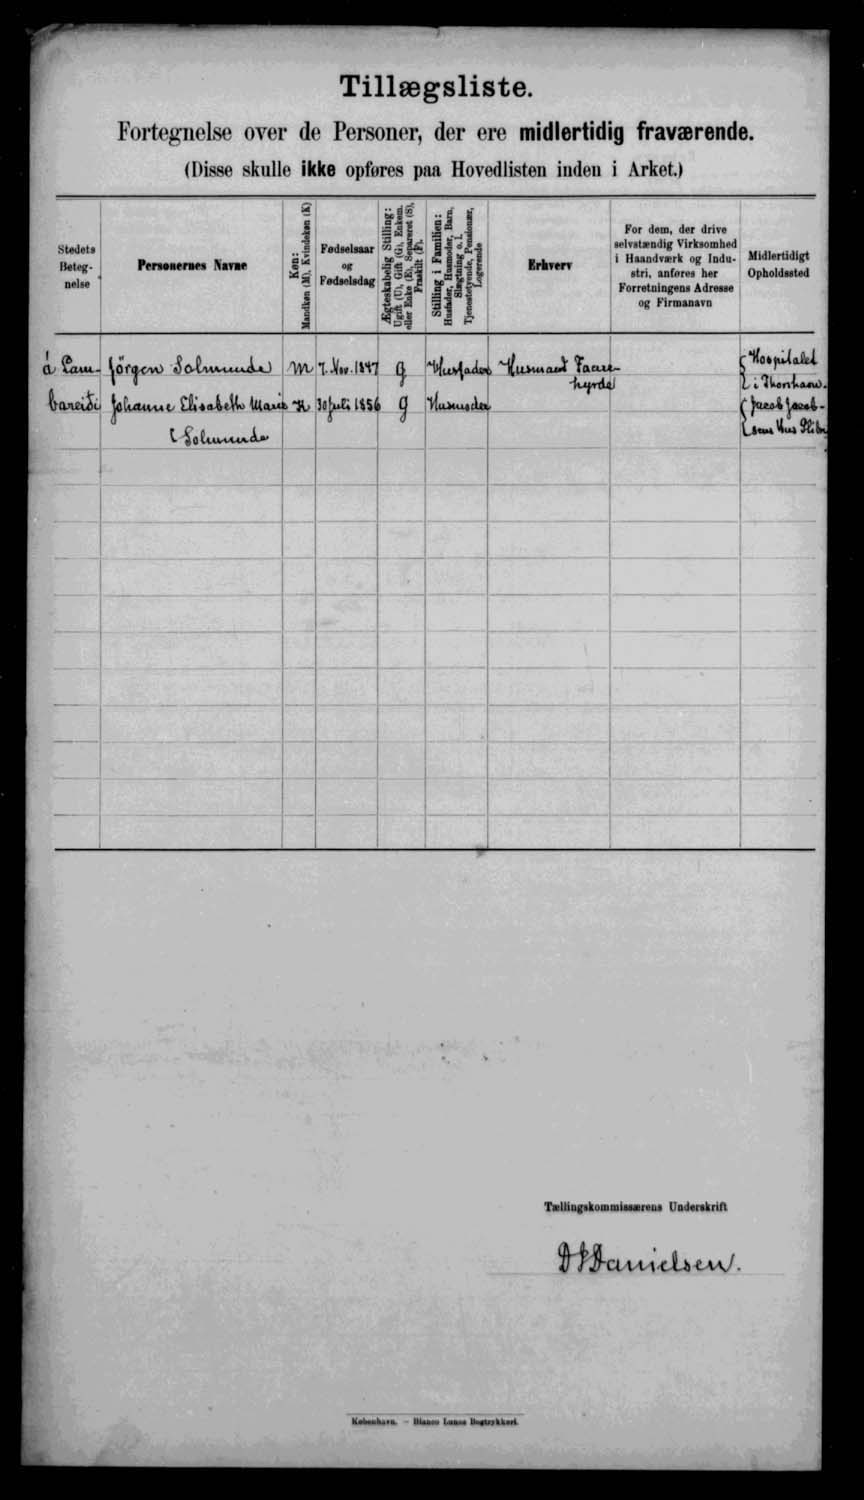 Tillægsliste.
Fortegnelse over de Personer, der ere midlertidig fraværende.
(Disse skulle ikke opføres paa Hovedlisten inden i Arket.)
Stedets
Beteg-
nelse
Personernes Navne
Køn:
Mandkøn (M), Kvindekøn (K)
Fødselsaar
og
Fødselsdag
Ægteskabelig Stilling:
Ugift (U), Gift (G), Enkem.
eller Enke (E), Separeret (S),
Fraskilt (F).
Stilling i Familien:
Husfader, Husmoder, Barn,
Slægtning o. l.
Tjenestetyende, Pensionær,
Logerende
Erhverv
For dem, der drive
selvstændig Virksomhed
i Haandværk og Indu-
stri, anføres her
Forretningens Adresse
og Firmanavn
Midlertidigt
Opholdssted
á Lam- Jörgen Solmunde M 7. Nov. 1847 g Husfader Husmand Faare- Hospitalet
hyrde i Thorshavn.
bareiði Johanne Elisabeth Marie K 30 Juli 1856 g Husmoder Jacob Jacob-
Solmunde sens Hus
Tællingskommissærens Underskrift
DJDanielsen.
København. — Bianco Lunos Bogtrykkeri.